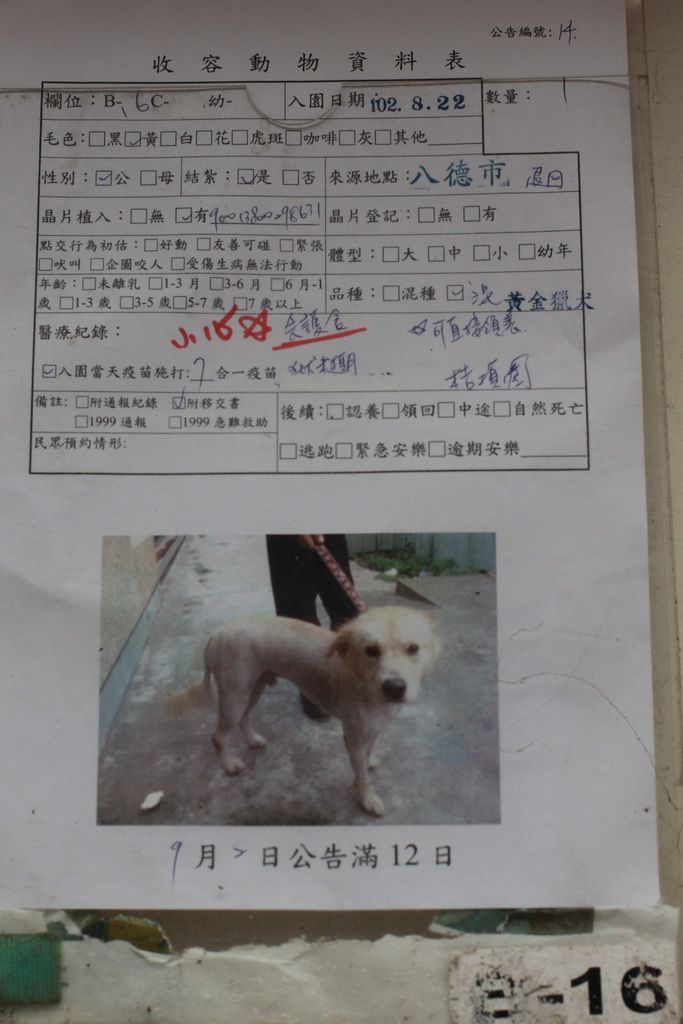 公告編號: 14.
收容動物資料表
欄位：B- 16 C- 幼- 入園日期 102. 8. 22 數量： 1
毛色：□黑☑黃□白□花□虎斑□咖啡□灰□其他
性別：☑公 □母 結紮：☑是 □否 來源地點： 八德市
晶片植入：□無 ☑有 晶片登記：□無 □有
點交行為初估：□好動 □友善可碰 □緊張
□吠叫 □企圖咬人 □受傷生病無法行動
體型：□大 □中 □小 □幼年
年齡：□未離乳 □1-3 月 □3-6 月 □6 月-1
歲 □1-3 歲 □3-5 歲□5-7 歲 □7 歲以上
品種：□混種 ☑ 混 黃金獵犬
醫療紀錄：
可直接領養
☑入園當天疫苗施打: 7 合一疫苗
備註: □附通報紀錄 ☑附移交書
□1999 通報 □1999 急難救助
後續：□認養□領回□中途□自然死亡
民眾預約情形:
□逃跑□緊急安樂□逾期安樂
9 月 2 日公告滿 12 日
-16